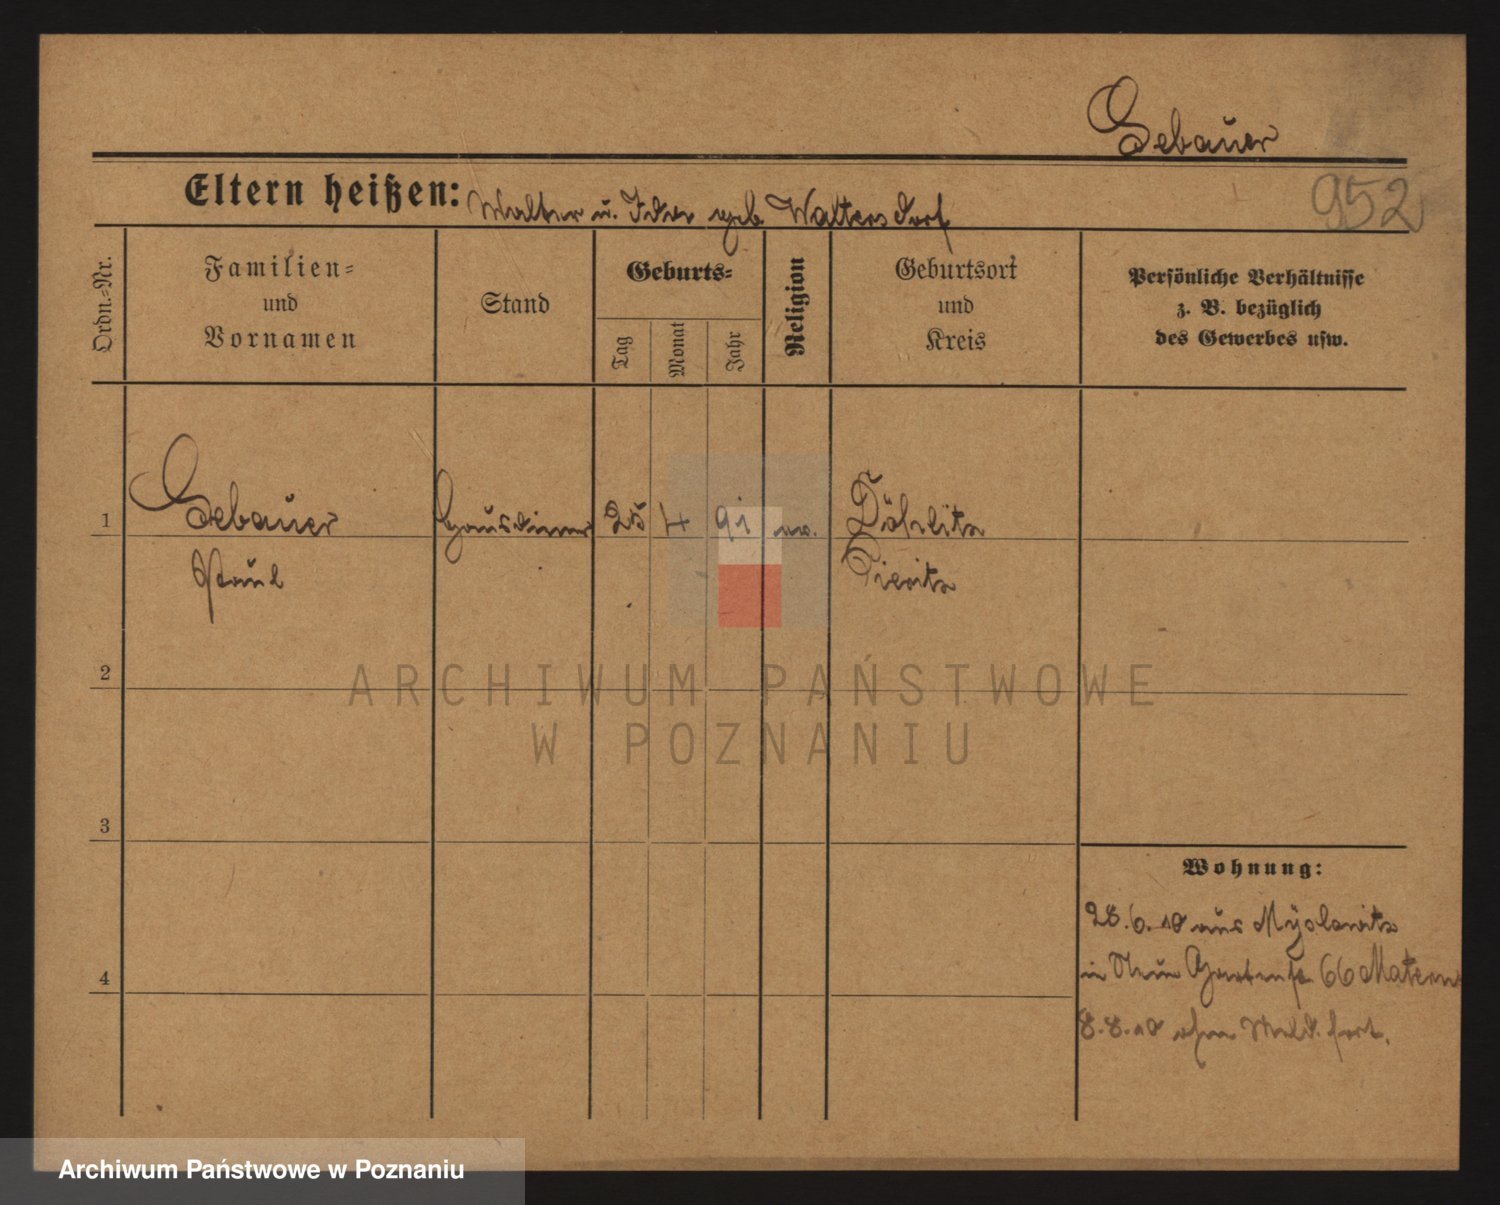 Gebauer
952
Eltern heißen: Walter u. Ida geb. Waltersdorf
Ordn.-Nr.
Familien-
und
Vornamen
Stand
Geburts-
Tag
Monat
Jahr
Religion
Geburtsort
und
Kreis
Persönliche Verhältnisse
z. B. bezüglich
des Gewerbes usw.
1
Gebauer
Paul
Hausdiener
25
4
91
ev.
2
3
4
Wohnung:
28.6.10 aus
in Neue Gartenstr. 66 Matern
8.8.10 ohne Meld. fort.
ARCHIWUM PAŃSTWOWE
W POZNANIU
Archiwum Państwowe w Poznaniu